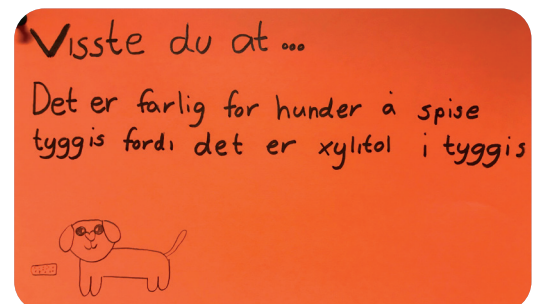 Visste du at...
Det er farlig for hunder å spise
tyggis fordi det er xylitol i tyggis